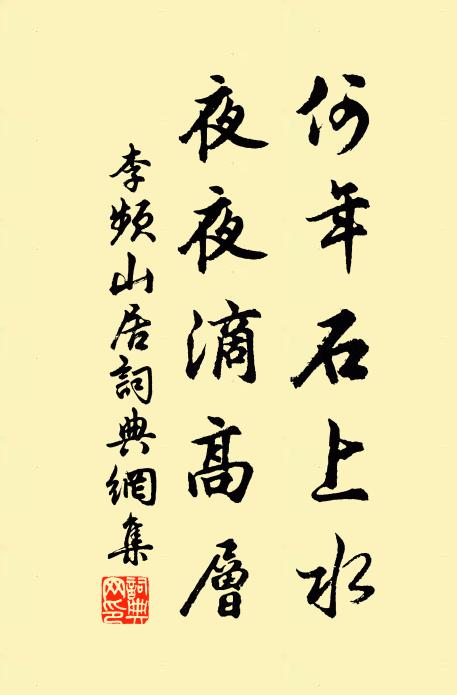 何年石上水
夜夜滴高層
李頻山居詞典網集
詞典
网印